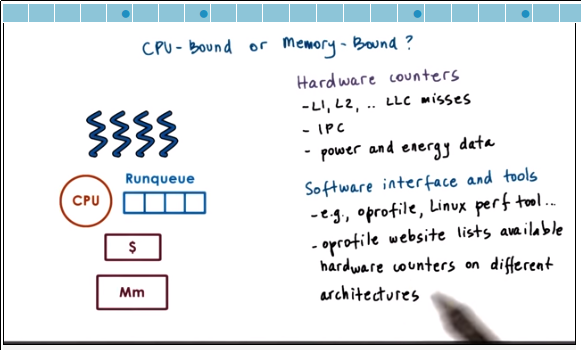 CPU-Bound or Memory-Bound?
Hardware counters
- L1, L2, .. LLC misses
- IPC
- power and energy data
Runqueue
CPU
$
Mm
Software interface and tools
- e.g., oprofile, Linux perf tool...
- oprofile website lists available
hardware counters on different
architectures